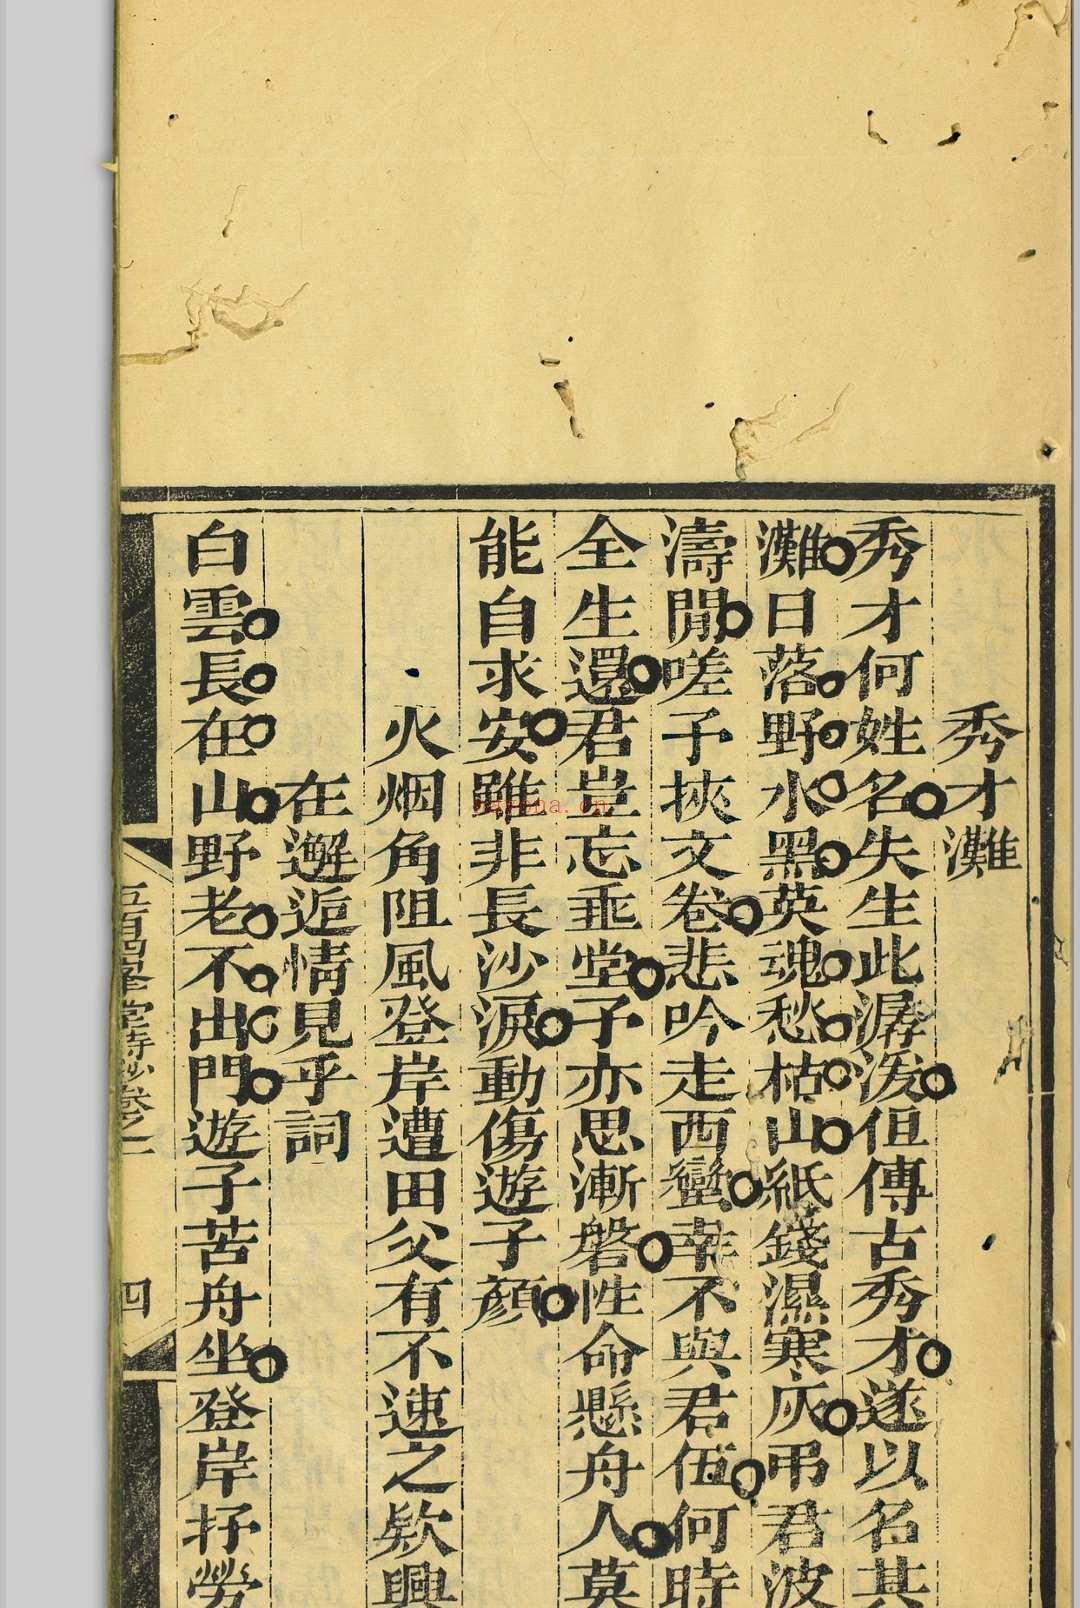 秀才灘
秀才何姓名失生此潺湲但傳古秀才遂以名其
灘日落野水黑英魂愁枯山紙錢濕寒灰弔君波
濤間嗟子挾文卷悲吟走西蠻幸不與君伍何時
全生還君豈忘垂堂子亦思漸磐性命懸舟人莫
能自求安雖非長沙淚動傷遊子顏
火烟角阻風登岸遭田父有不速之欵興
在邂逅情見乎詞
白雲長在山野老不出門遊子苦舟坐登岸抒勞
五百四峯堂詩鈔卷之一
四